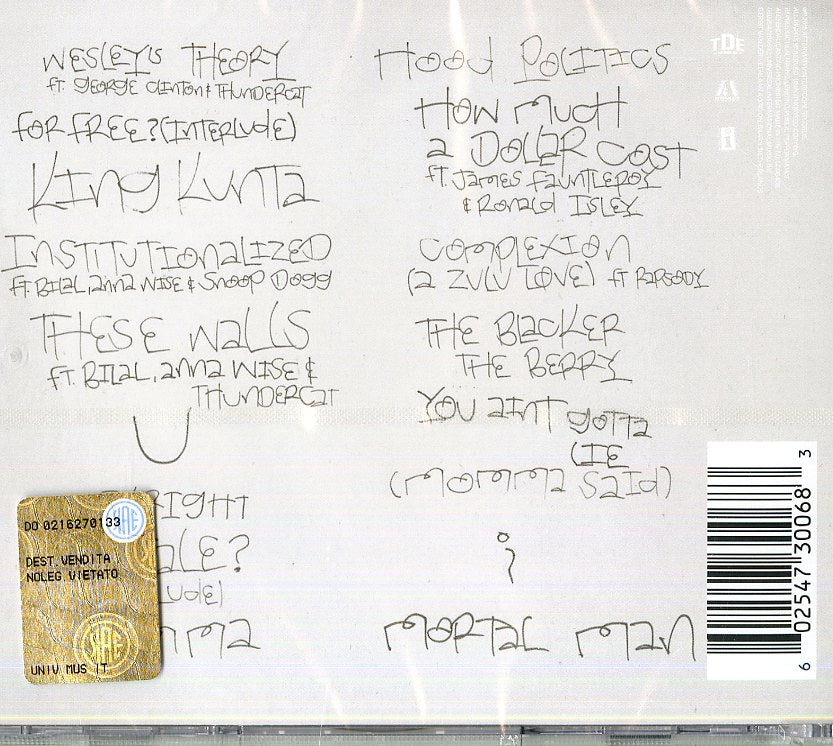 WESLEY'S THEORY
ft. GEORGE CLINTON & THUNDERCAT
FOR FREE? (INTERLUDE)
KING KUNTA
INSTITUTIONALIZED
ft. BILAL, ANNA WISE & SNOOP DOGG
THESE WALLS
ft. BILAL, ANNA WISE &
THUNDERCAT
U
RIGHT
ALE?
LUDE)
MMA
HOOD POLITICS
HOW MUCH
A DOLLAR COST
ft. JAMES FAUNTLEROY
& RONALD ISLEY
COMPLEXION
(A ZULU LOVE) ft RAPSODY
THE BLACKER
THE BERRY
YOU AINT GOTTA
LIE
(MOMMA SAID)
i
MORTAL MAN
TDE
DO 0216270133
SIAE
DEST.VENDITA
NOLEG.VIETATO
SIAE
UNIV MUS IT
6 02547 30068 3